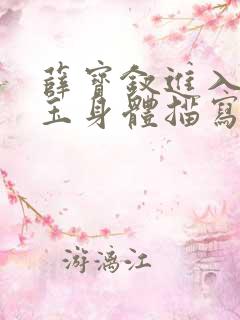 薛寶釵進入
玉身體描寫
游漓江